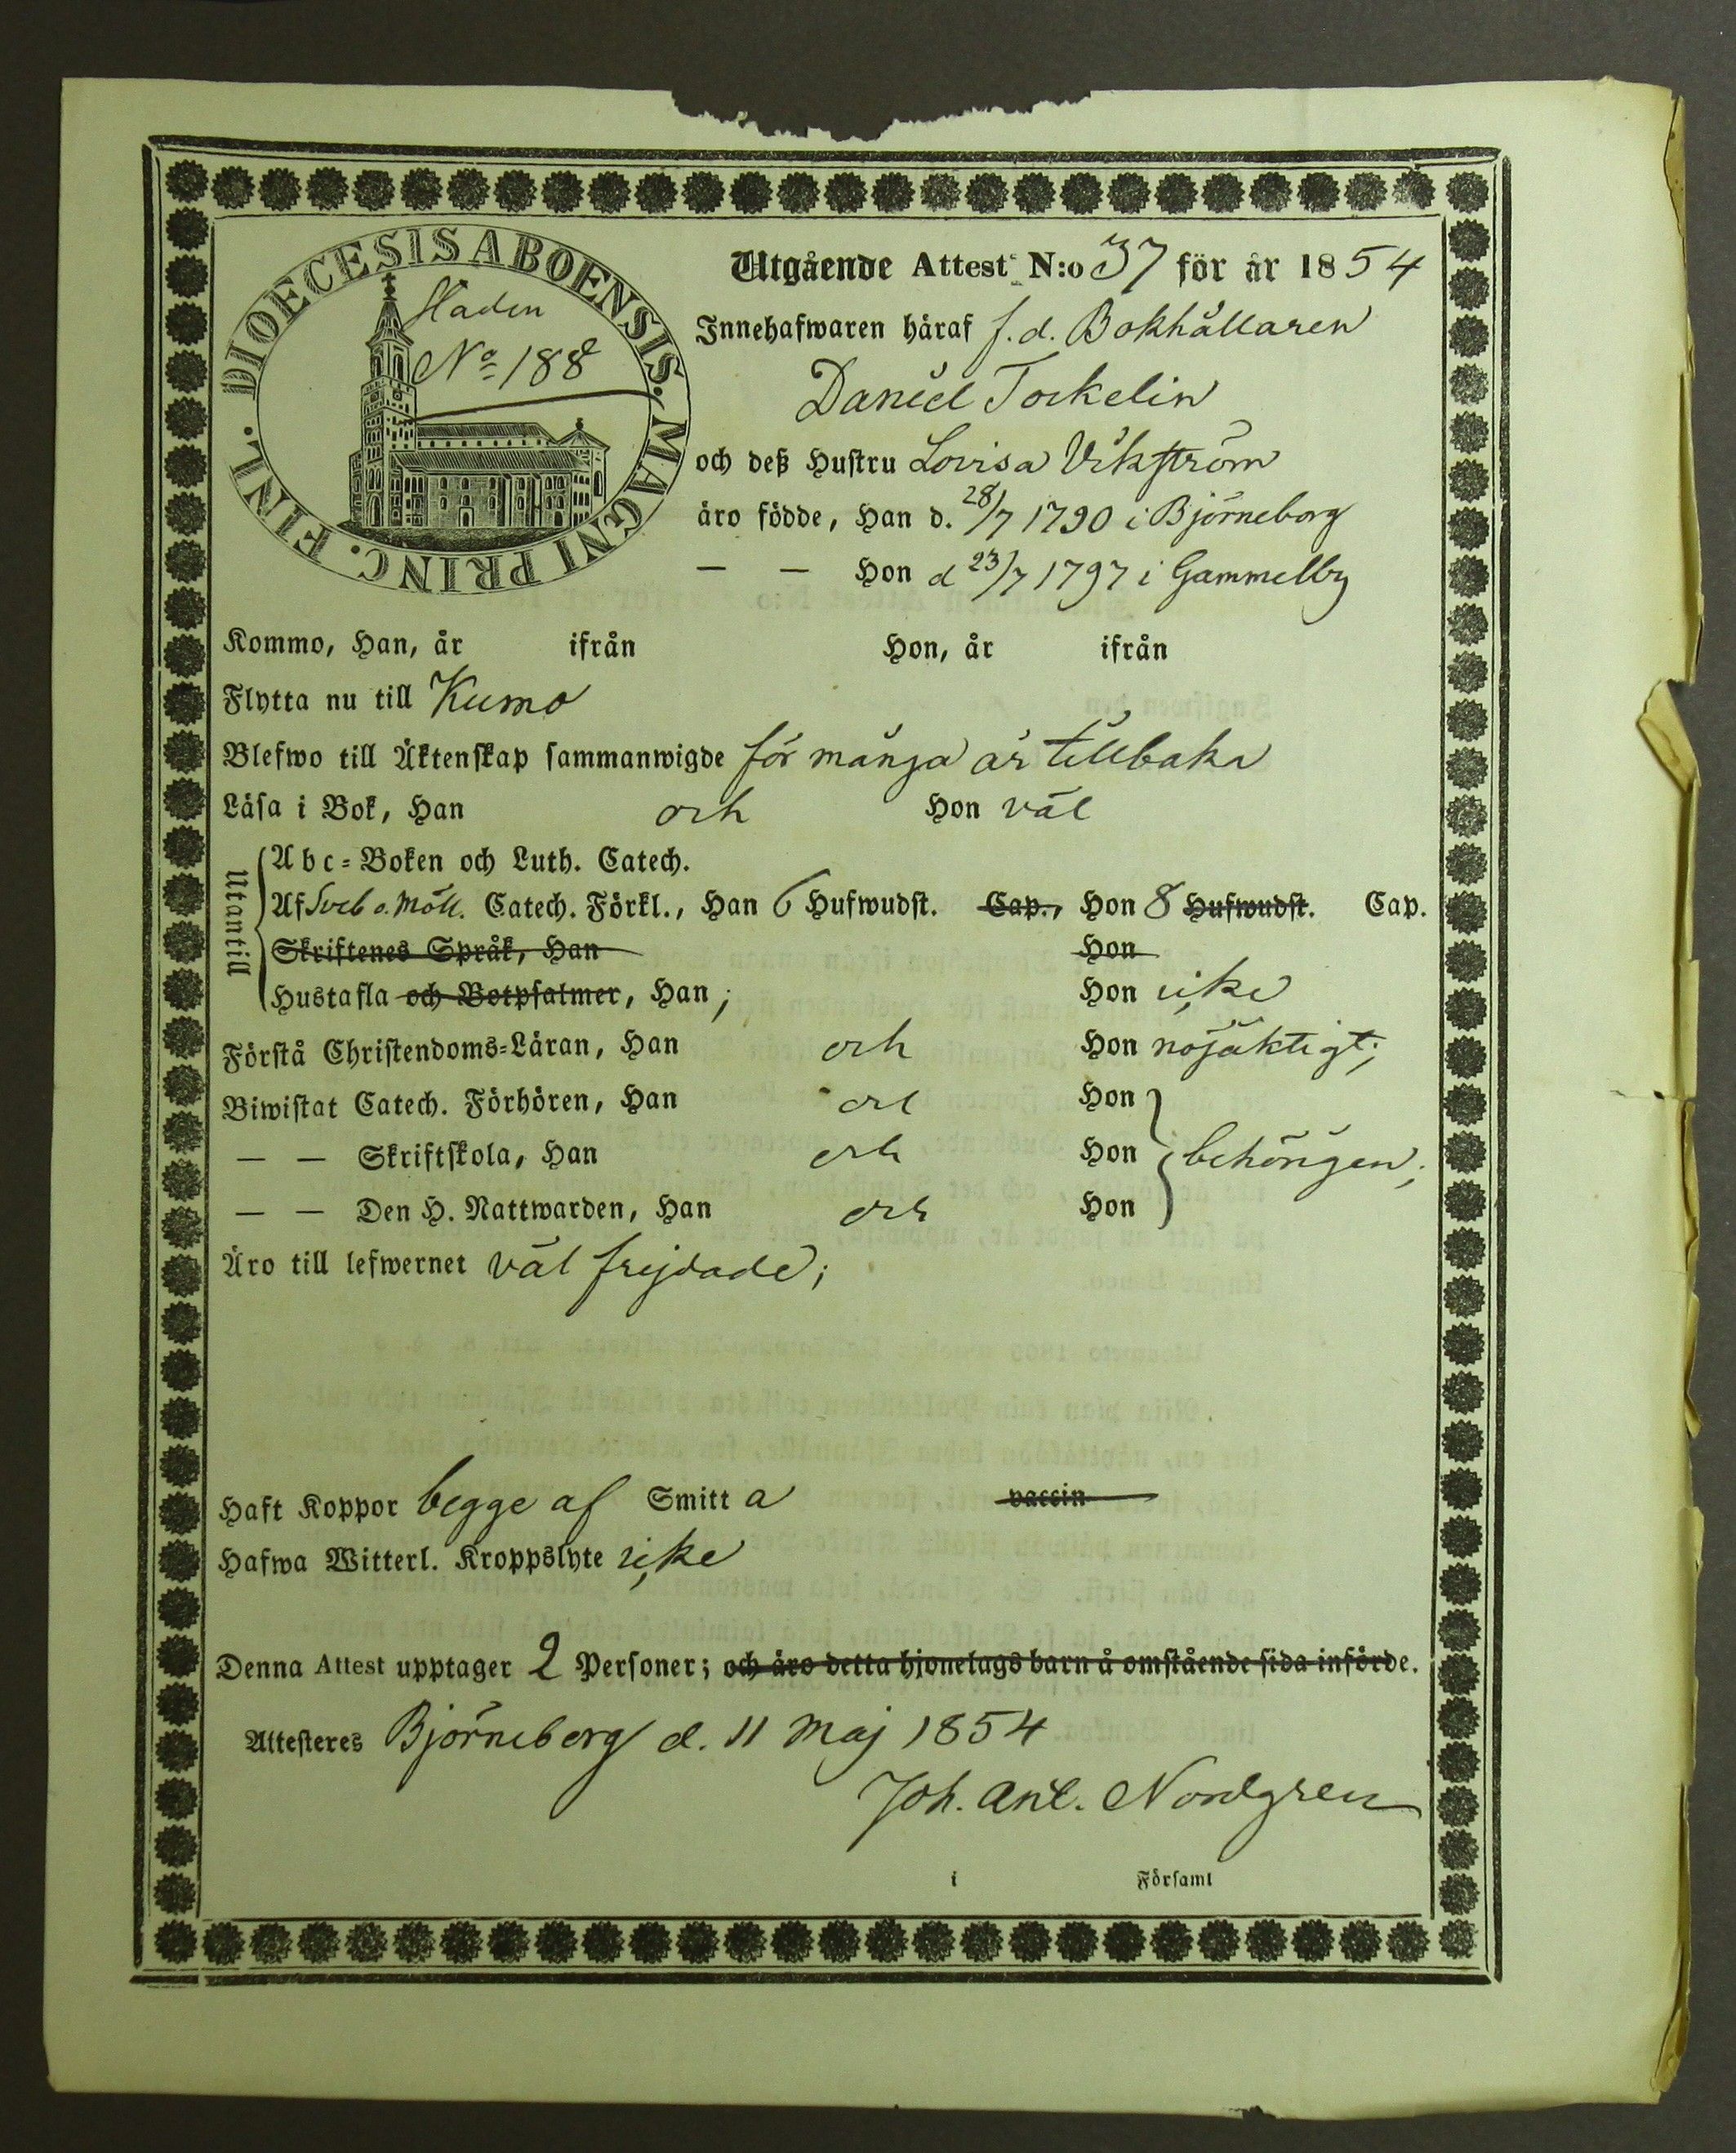 DIOECESIS ABOENSIS. MAGNI PRINC. FINL.
Staden
No 188
Utgående Attest N:o 37 för år 1854
Innehafwaren häraf f.d. Bokhållaren
Daniel Tockelin
och deß Hustru Lovisa Vikström
äro födde, Han d. 28/7 1790 i Björneborg
— — Hon d 23/7 1797 i Gammelby
Kommo, Han, år ifrån Hon, år ifrån
Flytta nu till Kumo
Blefwo till Äktenskap sammanwigde för många år tillbaka
Läsa i Bok, Han och Hon väl
Utantill
Abc-Boken och Luth. Catech.
Af Sveb o. Möll. Catech. Förkl., Han 6 Hufwudst. Cap., Hon 8 Hufwudst. Cap.
Skriftenes Språk, Han Hon
Hustafla och Botpsalmer, Han; Hon icke
Förstå Christendoms-Läran, Han och Hon nöjaktigt;
Biwistat Catech. Förhören, Han och Hon
— — Skriftskola, Han och Hon behörigen;
— — Den H. Nattwarden, Han och Hon
Äro till lefwernet väl frejdade;
Haft Koppor begge af Smitta vaccin
Hafwa Witterl. Kroppslyte icke
Denna Attest upptager 2 Personer; och äro detta hjonelags barn å omstående sida införde.
Attesteres Björneborg d. 11 Maj 1854
Joh. Ant. Nordgren
i Församl